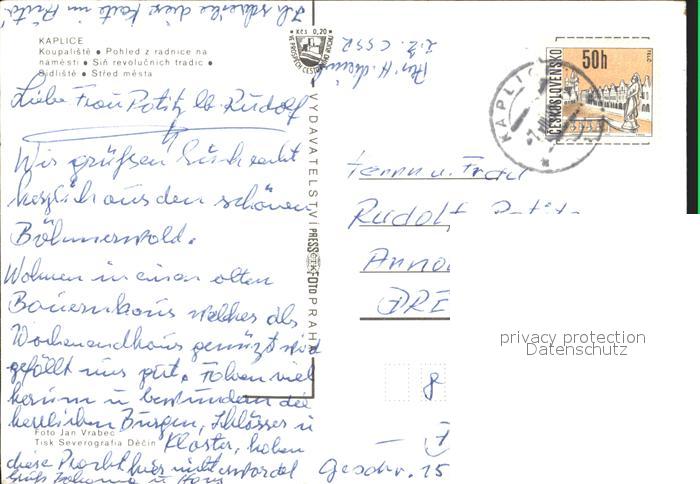 Ich schreibe diese Karte im
KAPLICE
Koupaliště • Pohled z radnice na
náměstí • Síň revolučních tradic •
Sídliště • Střed města
Kčs 0,20
z.Z. CSSR
ČESKOSLOVENSKO
50h
TELČ
KAPLICE
Liebe Frau Potitz lb. Rudolf
Wir grüßen Euch recht
herzlich aus den schönen
Böhmerwald.
Wohnen in einen alten
Bauernhaus welches als
Wochenendhaus genützt wird
gefällt uns gut. Fahren viel
herum u bewundern die
herrlichen Burgen, Schlösser u
Klöster, haben
diese Pracht hier nicht erwartet
Grüß Johanna u Hans
Foto Jan Vrabec
Tisk Severografia Děčín
VYDAVATELSTVÍ PRESSFOTO PRAHA
Herrn u. Frau
Rudolf
DRE
8
Geschr. 15
privacy protection
Datenschutz